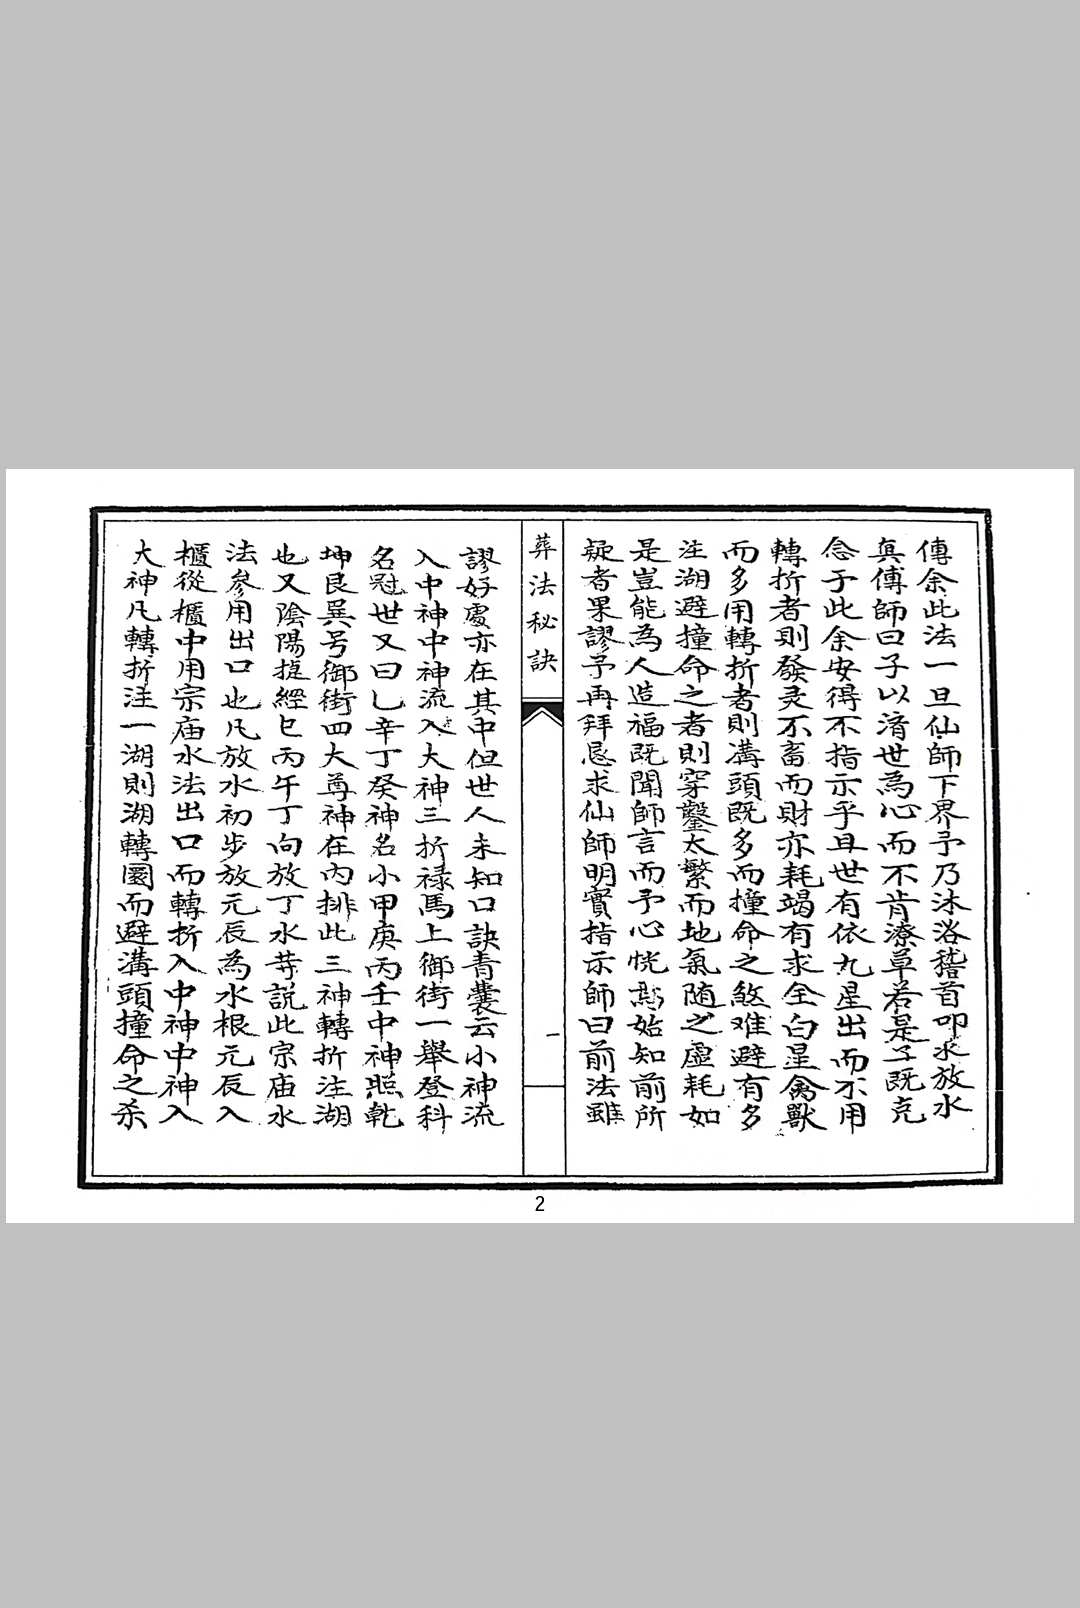 傳余此法一旦仙師下界予乃沐浴稽首叩求放水
真傳師曰子以濟世為心而不肯潦草若是子既克
念于此余安得不指示乎且世有依九星出而不用
轉折者則發灵不畜而財亦耗竭有求全白星禽獸
而多用轉折者則溝頭既多而撞命之煞难避有多
注湖避撞命之者則穿鑿太繁而地氣随之虛耗如
是豈能為人造福既聞師言而予心恍然始知前所
疑者果謬予再拜恳求仙師明實指示師曰前法雖
葬法秘訣
一
謬好處亦在其中但世人未知口訣青囊云小神流
入中神中神流入大神三折禄馬上御街一舉登科
名冠世又曰乙辛丁癸神名小甲庚丙壬中神照乾
坤艮巽号御街四大尊神在內排此三神轉折注湖
也又陰陽捷經巳丙午丁向放丁水等說此宗庙水
法參用出口也凡放水初步放元辰為水根元辰入
櫃從櫃中用宗庙水法出口而轉折入中神中神入
大神凡轉折注一湖則湖轉圜而避溝頭撞命之杀
2